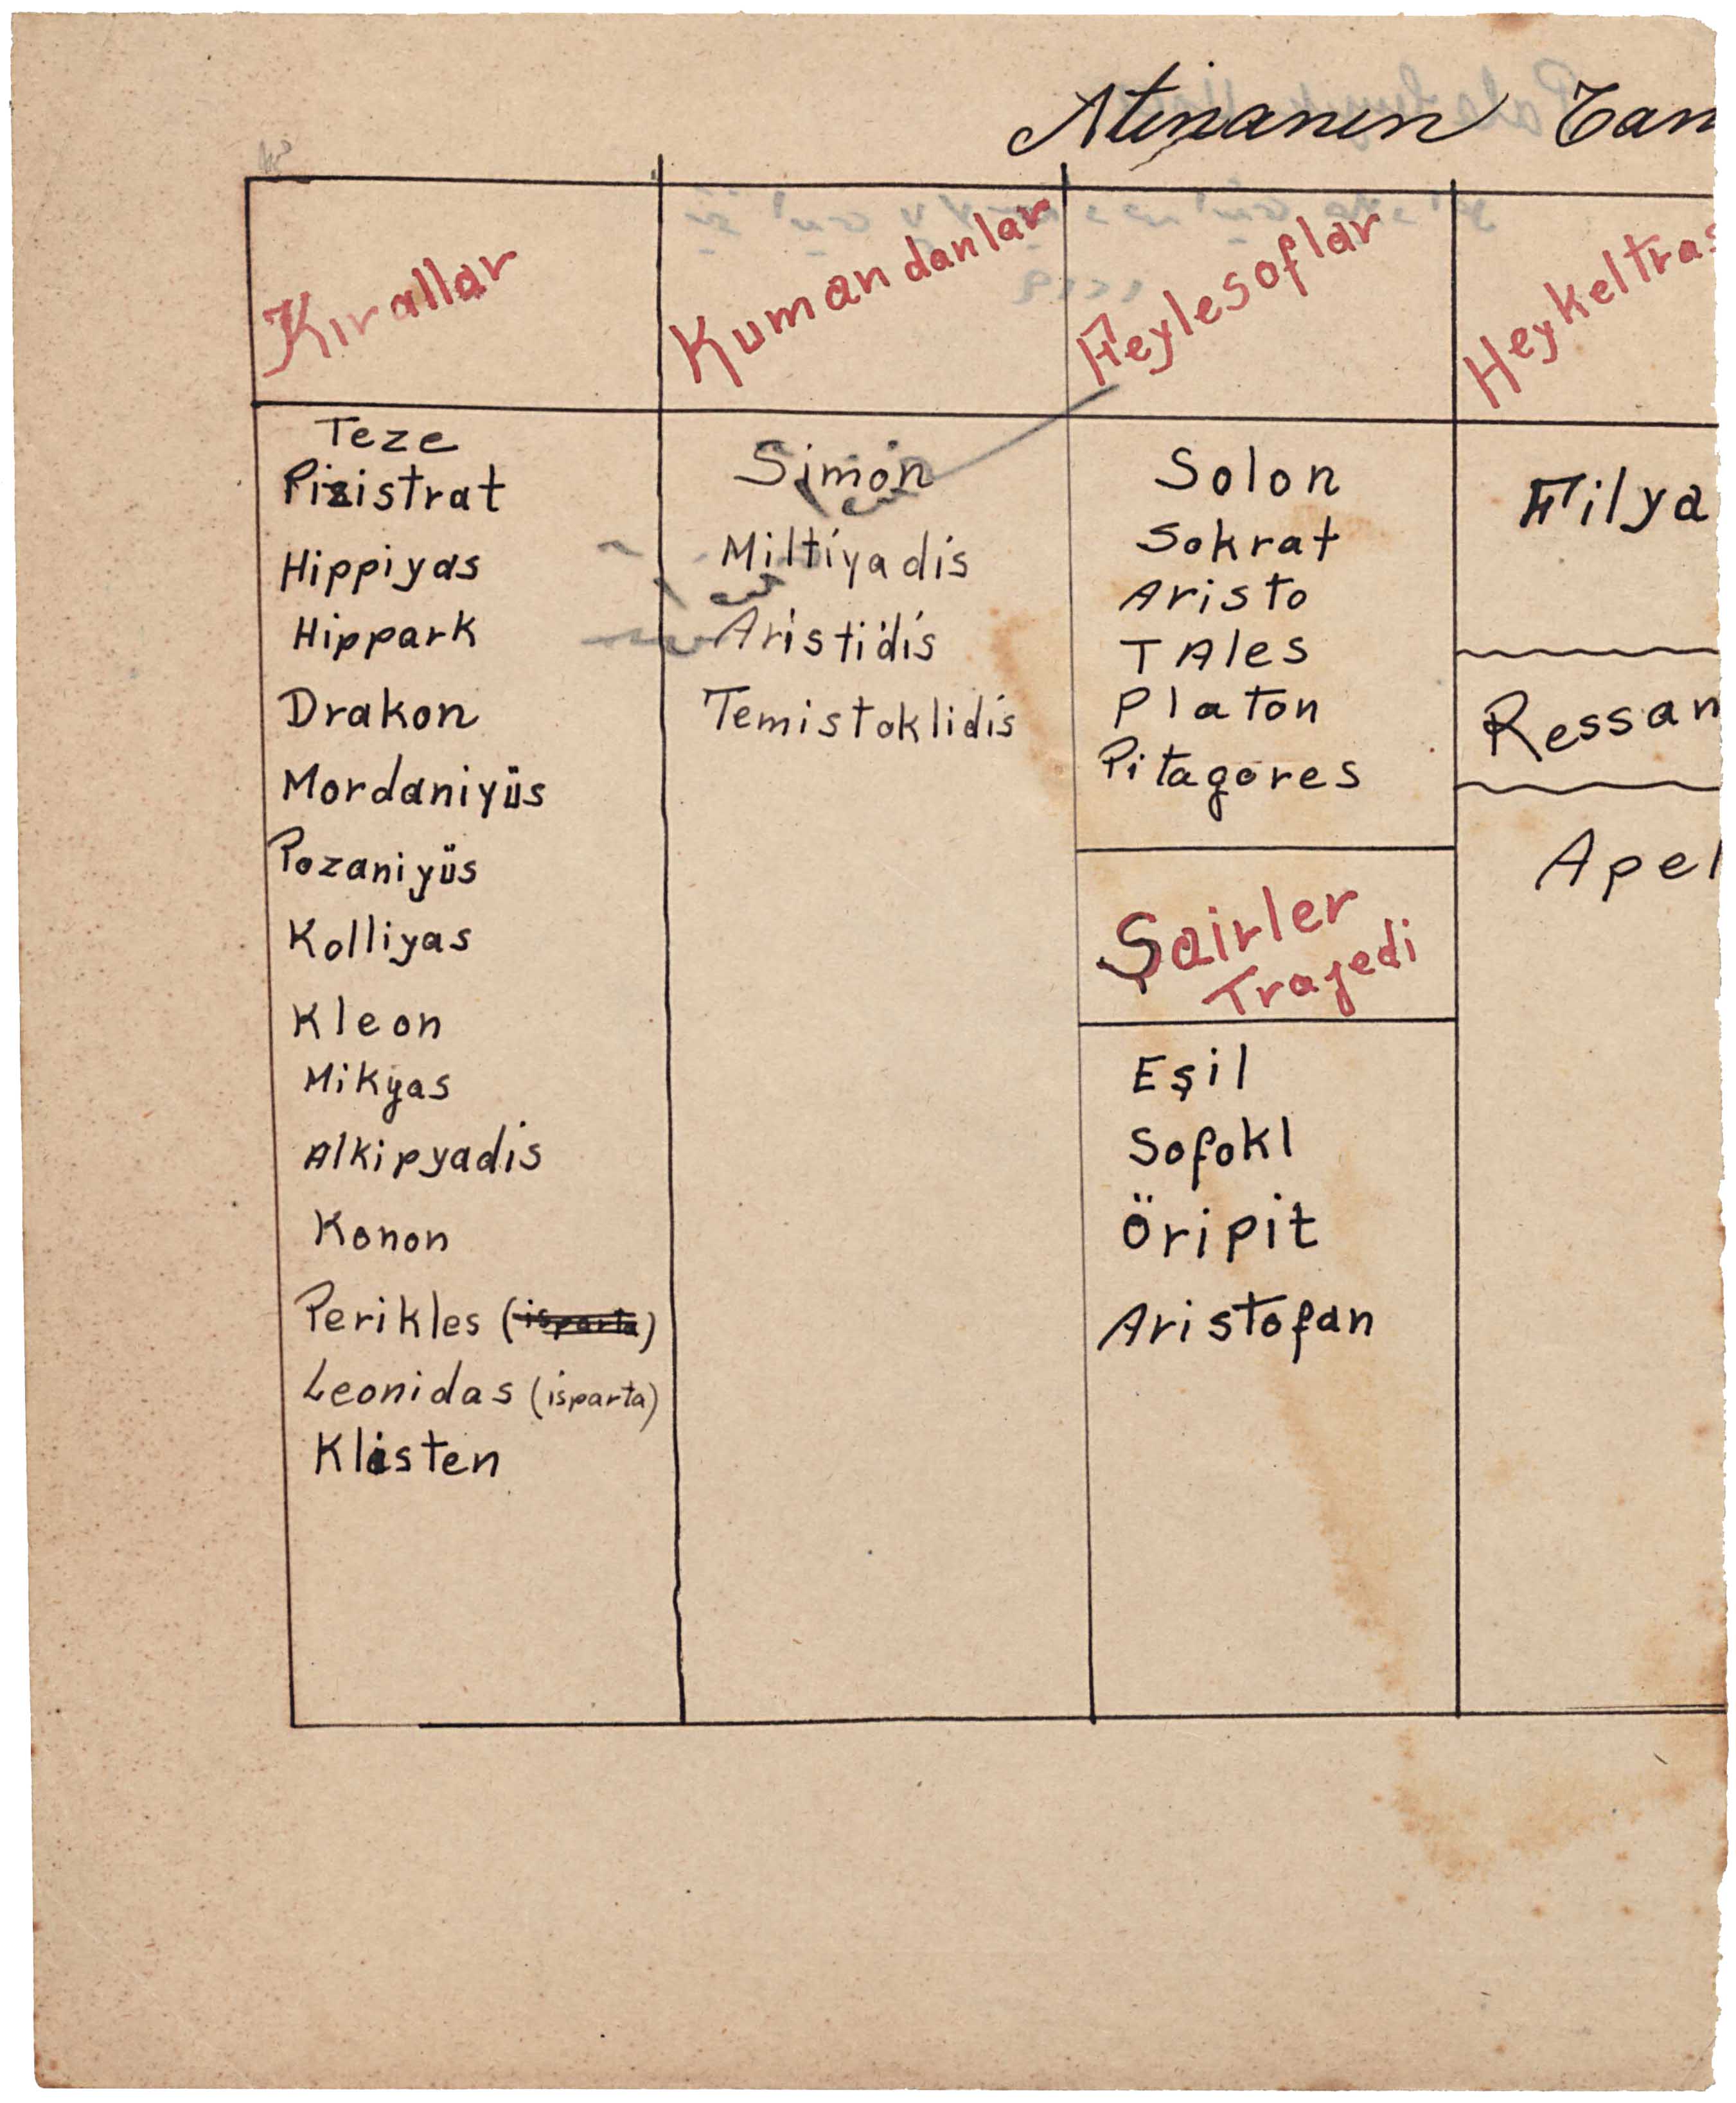 Atinanın Tan
Kırallar
Teze
Pizistrat
Hippiyas
Hippark
Drakon
Mordaniyüs
Pozaniyüs
Kolliyas
Kleon
Mikyas
Alkipyadis
Konon
Perikles (isparta)
Leonidas (isparta)
Klisten
Kumandanlar
Simon
Miltiyadis
Aristidis
Temistoklidis
Feylesoflar
Solon
Sokrat
Aristo
TAles
Platon
Pitagores
Şairler
Trajedi
Eşil
Sofokl
Öripit
Aristofan
Heykeltraş
Filya
Ressam
Apel